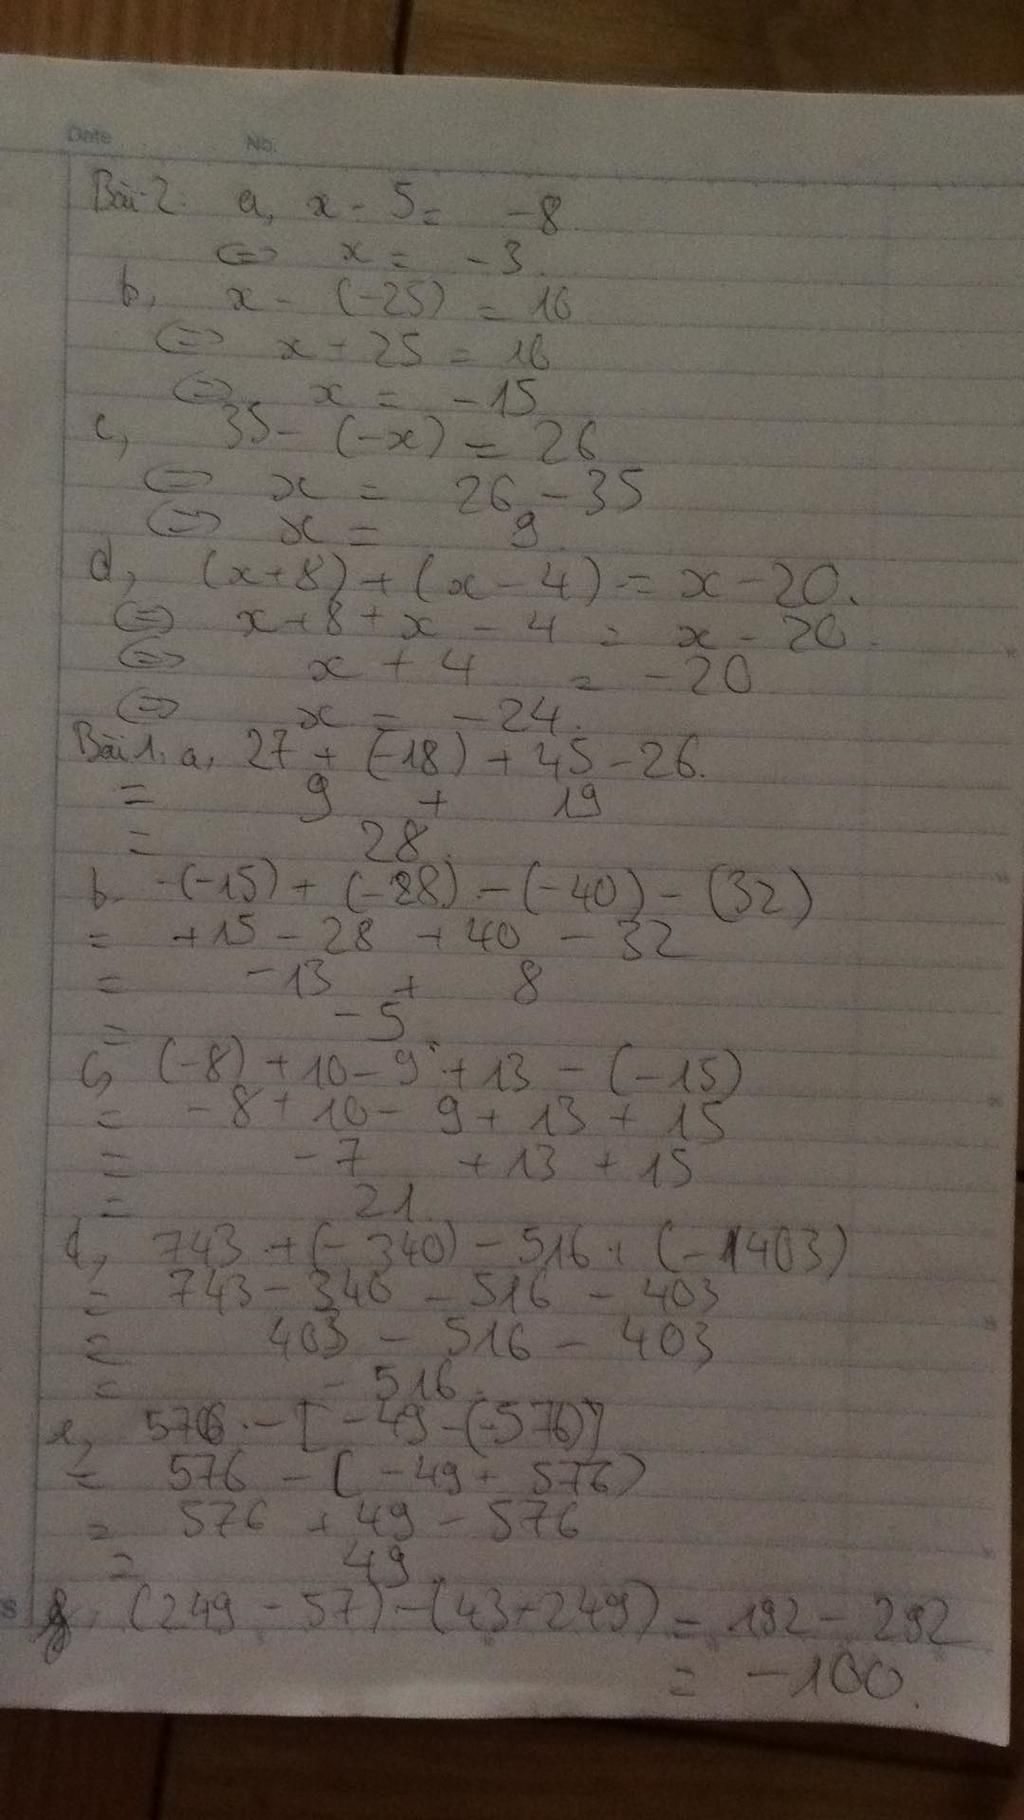 Date No.
Bài 2. a, x - 5 = -8.
⇔ x = -3.
b, x - (-25) = 16
⇔ x + 25 = 16
⇔ x = -15
c, 35 - (-x) = 26
⇔ x = 26 - 35
⇔ x = 9.
d, (x+8) + (x - 4) = x - 20.
⇔ x + 8 + x - 4 = x - 20.
⇔ x + 4 = -20
⇔ x = -24.
Bài 1. a, 27 + (-18) + 45 - 26.
= 9 + 19
= 28.
b. -(-15) + (-28) - (-40) - (32)
= +15 - 28 + 40 - 32
= -13 + 8
= -5.
c, (-8) + 10 - 9 + 13 - (-15)
= -8 + 10 - 9 + 13 + 15
= -7 + 13 + 15
= 21.
d, 743 + (-340) - 516 + (-403)
= 743 - 340 - 516 - 403
= 403 - 516 - 403
= -516.
e, 576 - [-49 - (-576)]
= 576 - (-49 + 576)
= 576 + 49 - 576
= 49.
(249 - 57) - (43 + 249) = 192 - 292
= -100.